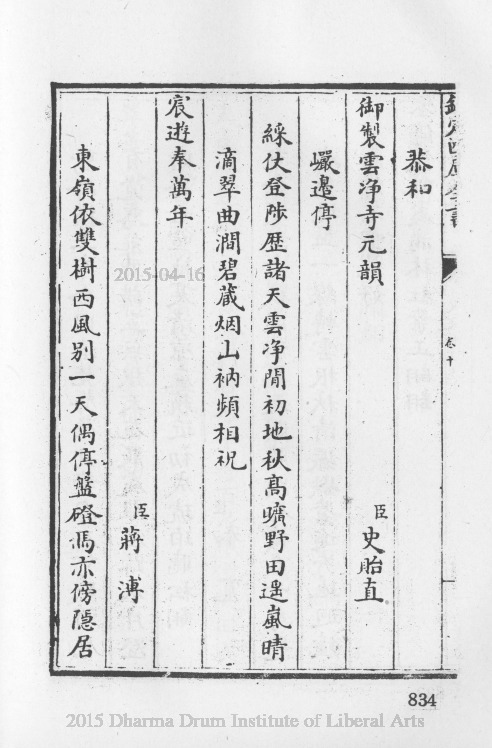 欽定四庫全書 卷十
恭和
御製雲淨寺元韻 臣史貽直
巘邊停
綵仗登陟歷諸天雲淨閒初地秋髙曠野田遥嵐晴
滴翠曲澗碧蔵烟山衲頻相祝
宸遊奉萬年
臣蔣溥
東嶺依雙樹西風别一天偶停盤磴馬亦傍隱居
2015-04-16
834
2015 Dharma Drum Institute of Liberal Arts